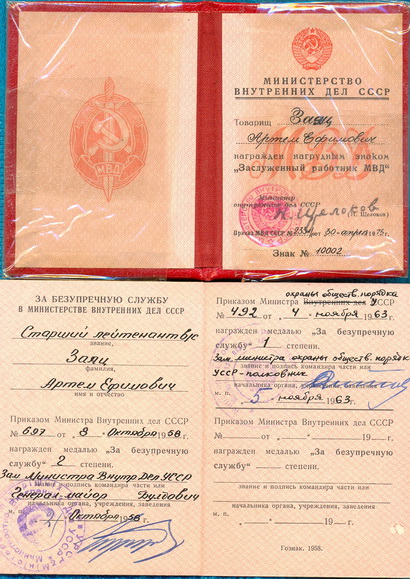 МВД
МИНИСТЕРСТВО
ВНУТРЕННИХ ДЕЛ СССР
Товарищ Заяц
Артем Ефимович
награжден нагрудным знаком
„Заслуженный работник МВД"
Министр
внутренних дел СССР
Н. Щелоков
(Н. Щелоков)
Приказ МВД СССР № от 30 апреля 1975г.
Знак № 10002
ЗА БЕЗУПРЕЧНУЮ СЛУЖБУ
В МИНИСТЕРСТВЕ ВНУТРЕННИХ ДЕЛ СССР
Старший лейтенант в/с
звание,
Заяц
фамилия,
Артем Ефимович
имя и отчество
Приказом Министра Внутренних Дел СССР
№ 697 от 8 Октября 1958 г.
награжден медалью „За безупречную
службу" 2 степени.
Зам Министра Внутр Дел УССР
звание и подпись командира части или
Генерал майор Дулдович
начальника органа, учреждения, заведения
м. п. Октября 1958 г.
охраны обществ. порядка
Приказом Министра Внутренних дел У
№ 492 от 4 ноября 1963.
награжден медалью „За безупречную
службу" 1 степени.
Зам. министра охраны обществ. порядка
звание и подпись командира части или
УССР-полковник
начальника органа,
м. п. 5 ноября 1963 г.
Приказом Министра Внутренних Дел СССР
№ от 19 г.
награжден медалью „За безупречную
службу" степени.
звание и подпись командира части или
начальника органа, учреждения, заведения
м. п. 19 г.
Гознак. 1958.